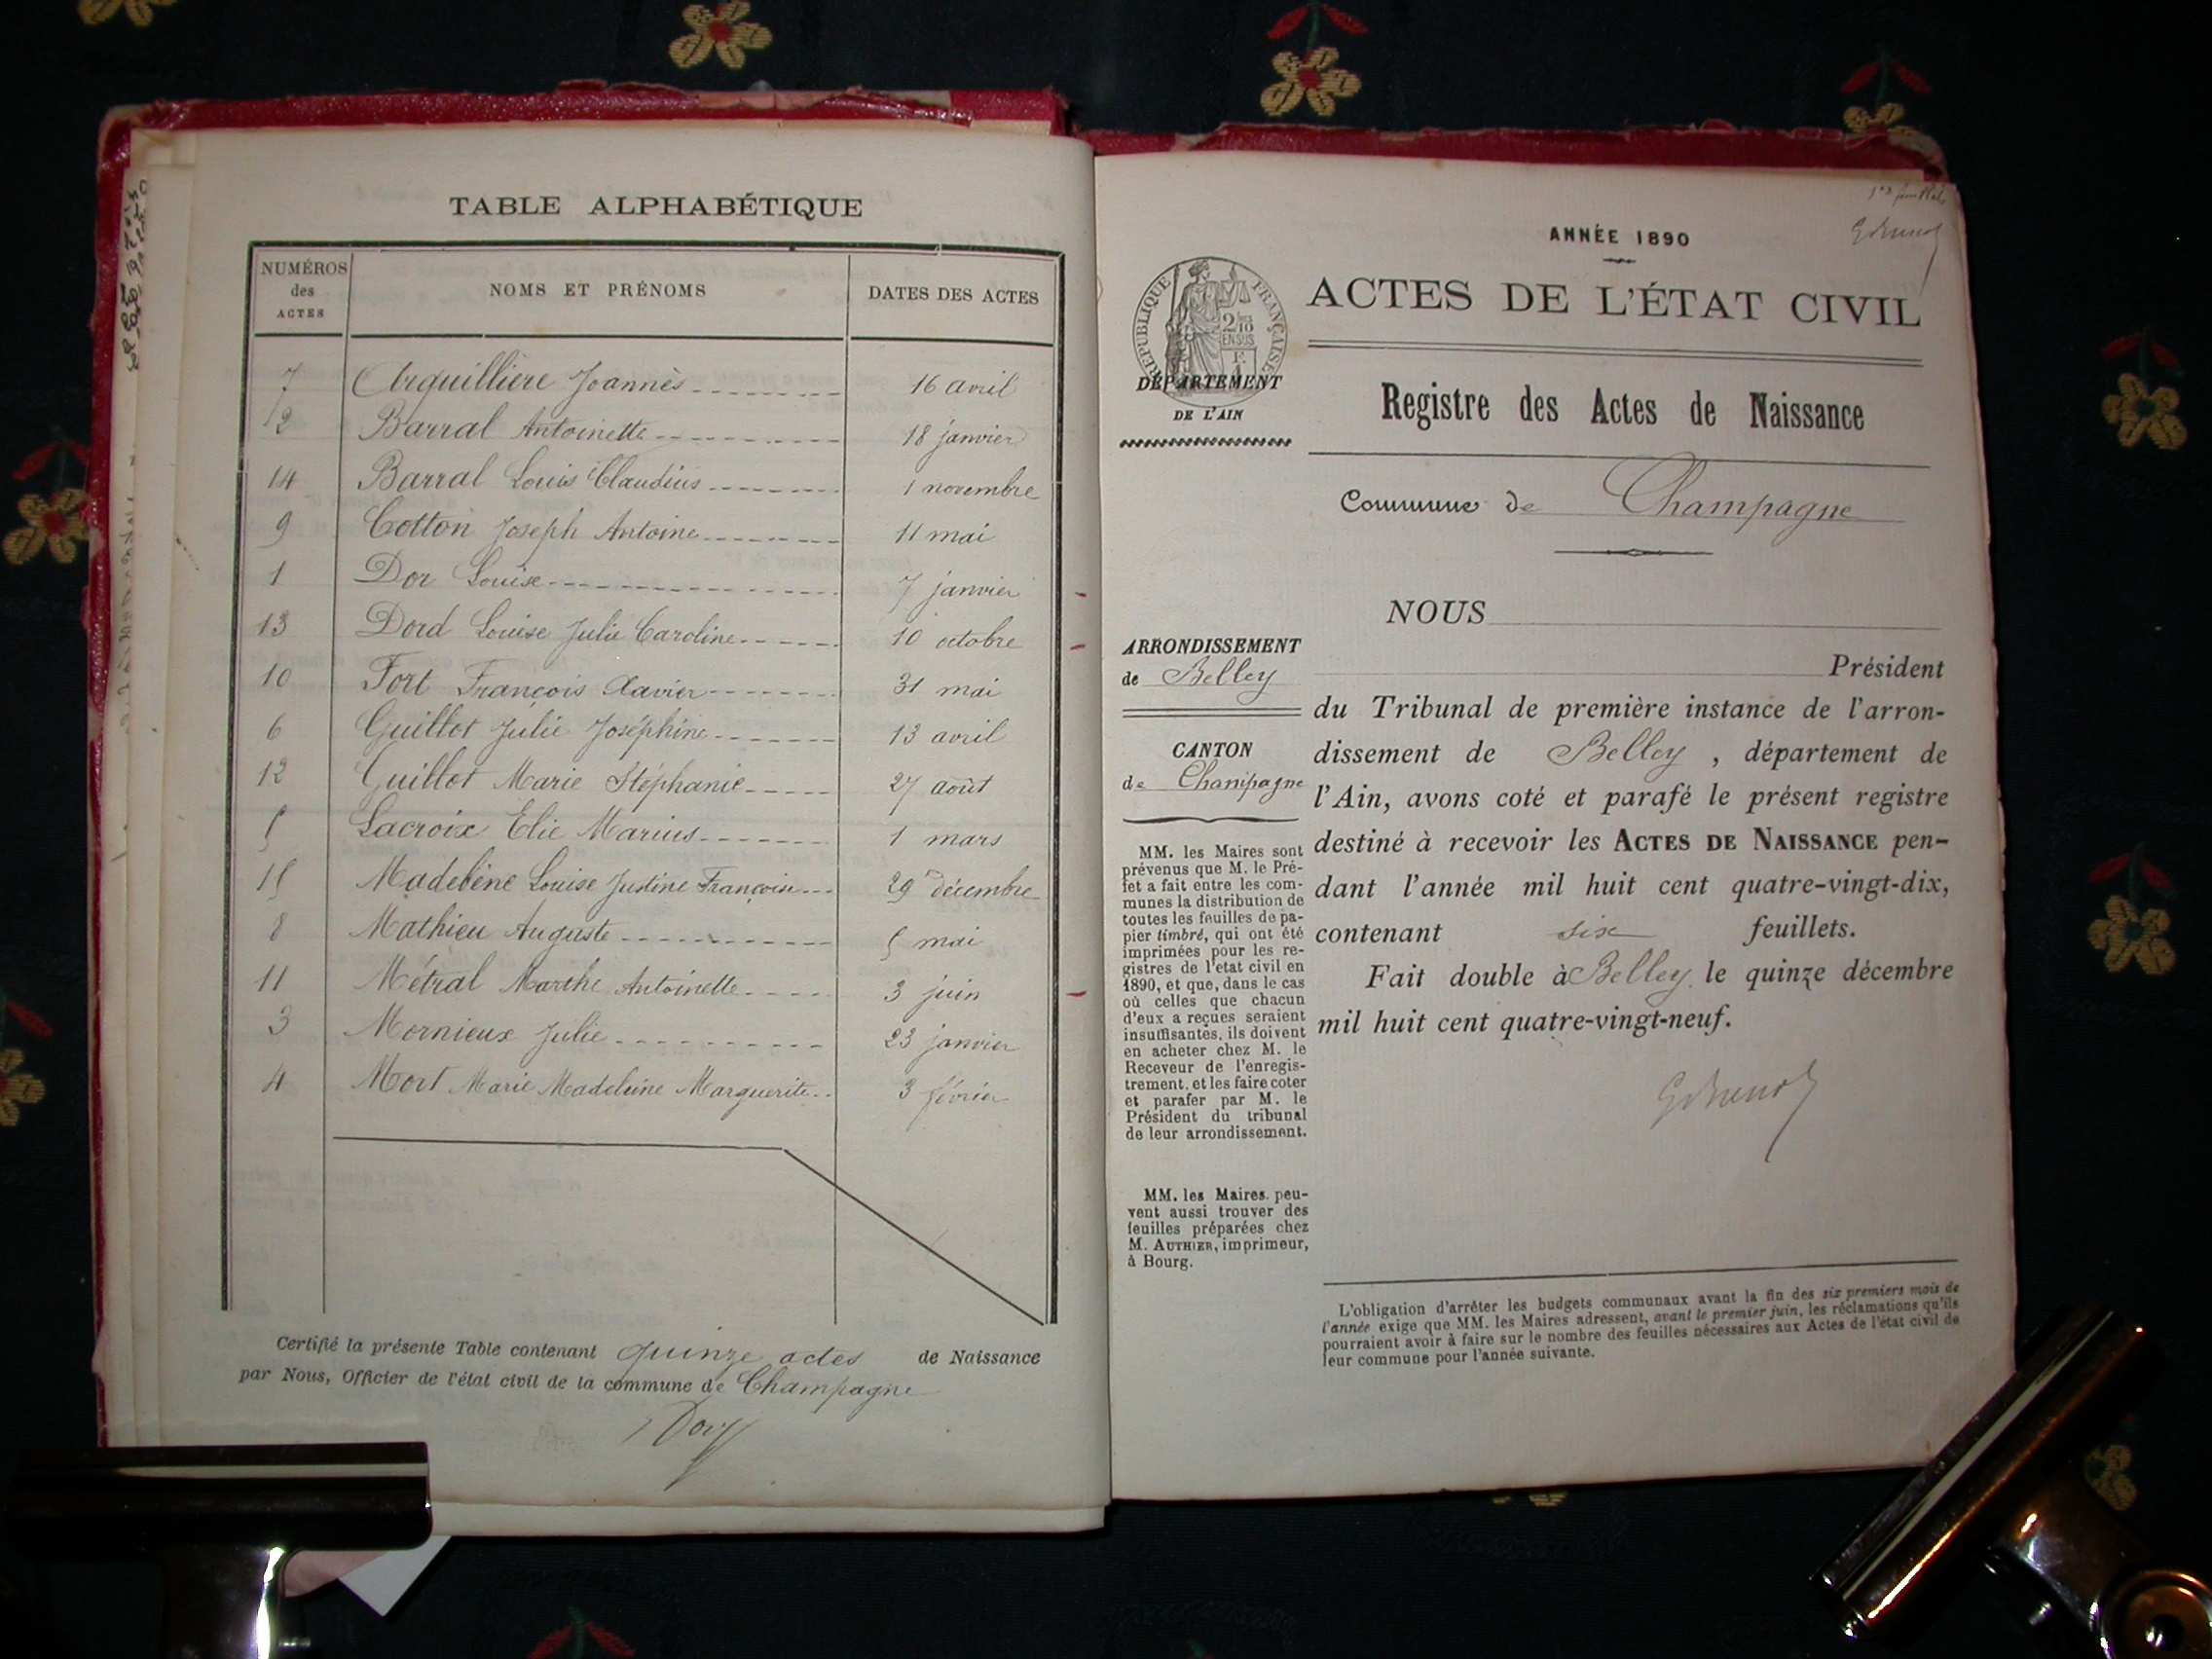 TABLE ALPHABÉTIQUE
NUMÉROS des ACTES NOMS ET PRÉNOMS DATES DES ACTES
7 Arquillière Joannès 16 avril
2 Barral Antoinette 18 janvier
14 Barral Louis Claudius 1 novembre
9 Cotton Joseph Antoine 11 mai
1 Dor Louise 7 janvier
13 Dord Louise Julie Caroline 10 octobre
10 Fort François Xavier 31 mai
6 Guillot Julie Joséphine 13 avril
12 Guillot Marie Stéphanie 27 août
5 Lacroix Elie Marius 1 mars
15 Madelène Louise Justine Françoise 29 décembre
8 Mathieu Auguste 5 mai
11 Métral Marthe Antoinette 3 juin
3 Mornieux Julie 23 janvier
4 Mort Marie Madeleine Marguerite 3 février
Certifié la présente Table contenant quinze actes de Naissance
par Nous, Officier de l'état civil de la commune de Champagne
ANNÉE 1890
ACTES DE L'ÉTAT CIVIL
REPUBLIQUE FRANÇAISE
2/10
EN SUS
DÉPARTEMENT
DE L'AIN
Registre des Actes de Naissance
Commune de Champagne
ARRONDISSEMENT
de Belley
CANTON
de Champagne
MM. les Maires sont
prévenus que M. le Pré-
fet a fait entre les com-
munes la distribution de
toutes les feuilles de pa-
pier timbré, qui ont été
imprimées pour les re-
gistres de l'etat civil en
1890, et que, dans le cas
où celles que chacun
d'eux a reçues seraient
insuffisantes, ils doivent
en acheter chez M. le
Receveur de l'enregis-
trement, et les faire coter
et parafer par M. le
Président du tribunal
de leur arrondissement.
MM. les Maires peu-
vent aussi trouver des
feuilles préparées chez
M. AUTHIER, imprimeur,
à Bourg.
NOUS
Président
du Tribunal de première instance de l'arron-
dissement de Belley, département de
l'Ain, avons coté et parafé le présent registre
destiné à recevoir les ACTES DE NAISSANCE pen-
dant l'année mil huit cent quatre-vingt-dix,
contenant six feuillets.
Fait double à Belley, le quinze décembre
mil huit cent quatre-vingt-neuf.
L'obligation d'arrêter les budgets communaux avant la fin des six premiers mois de
l'année exige que MM. les Maires adressent, avant le premier juin, les réclamations qu'ils
pourraient avoir à faire sur le nombre des feuilles nécessaires aux Actes de l'état civil de
leur commune pour l'année suivante.